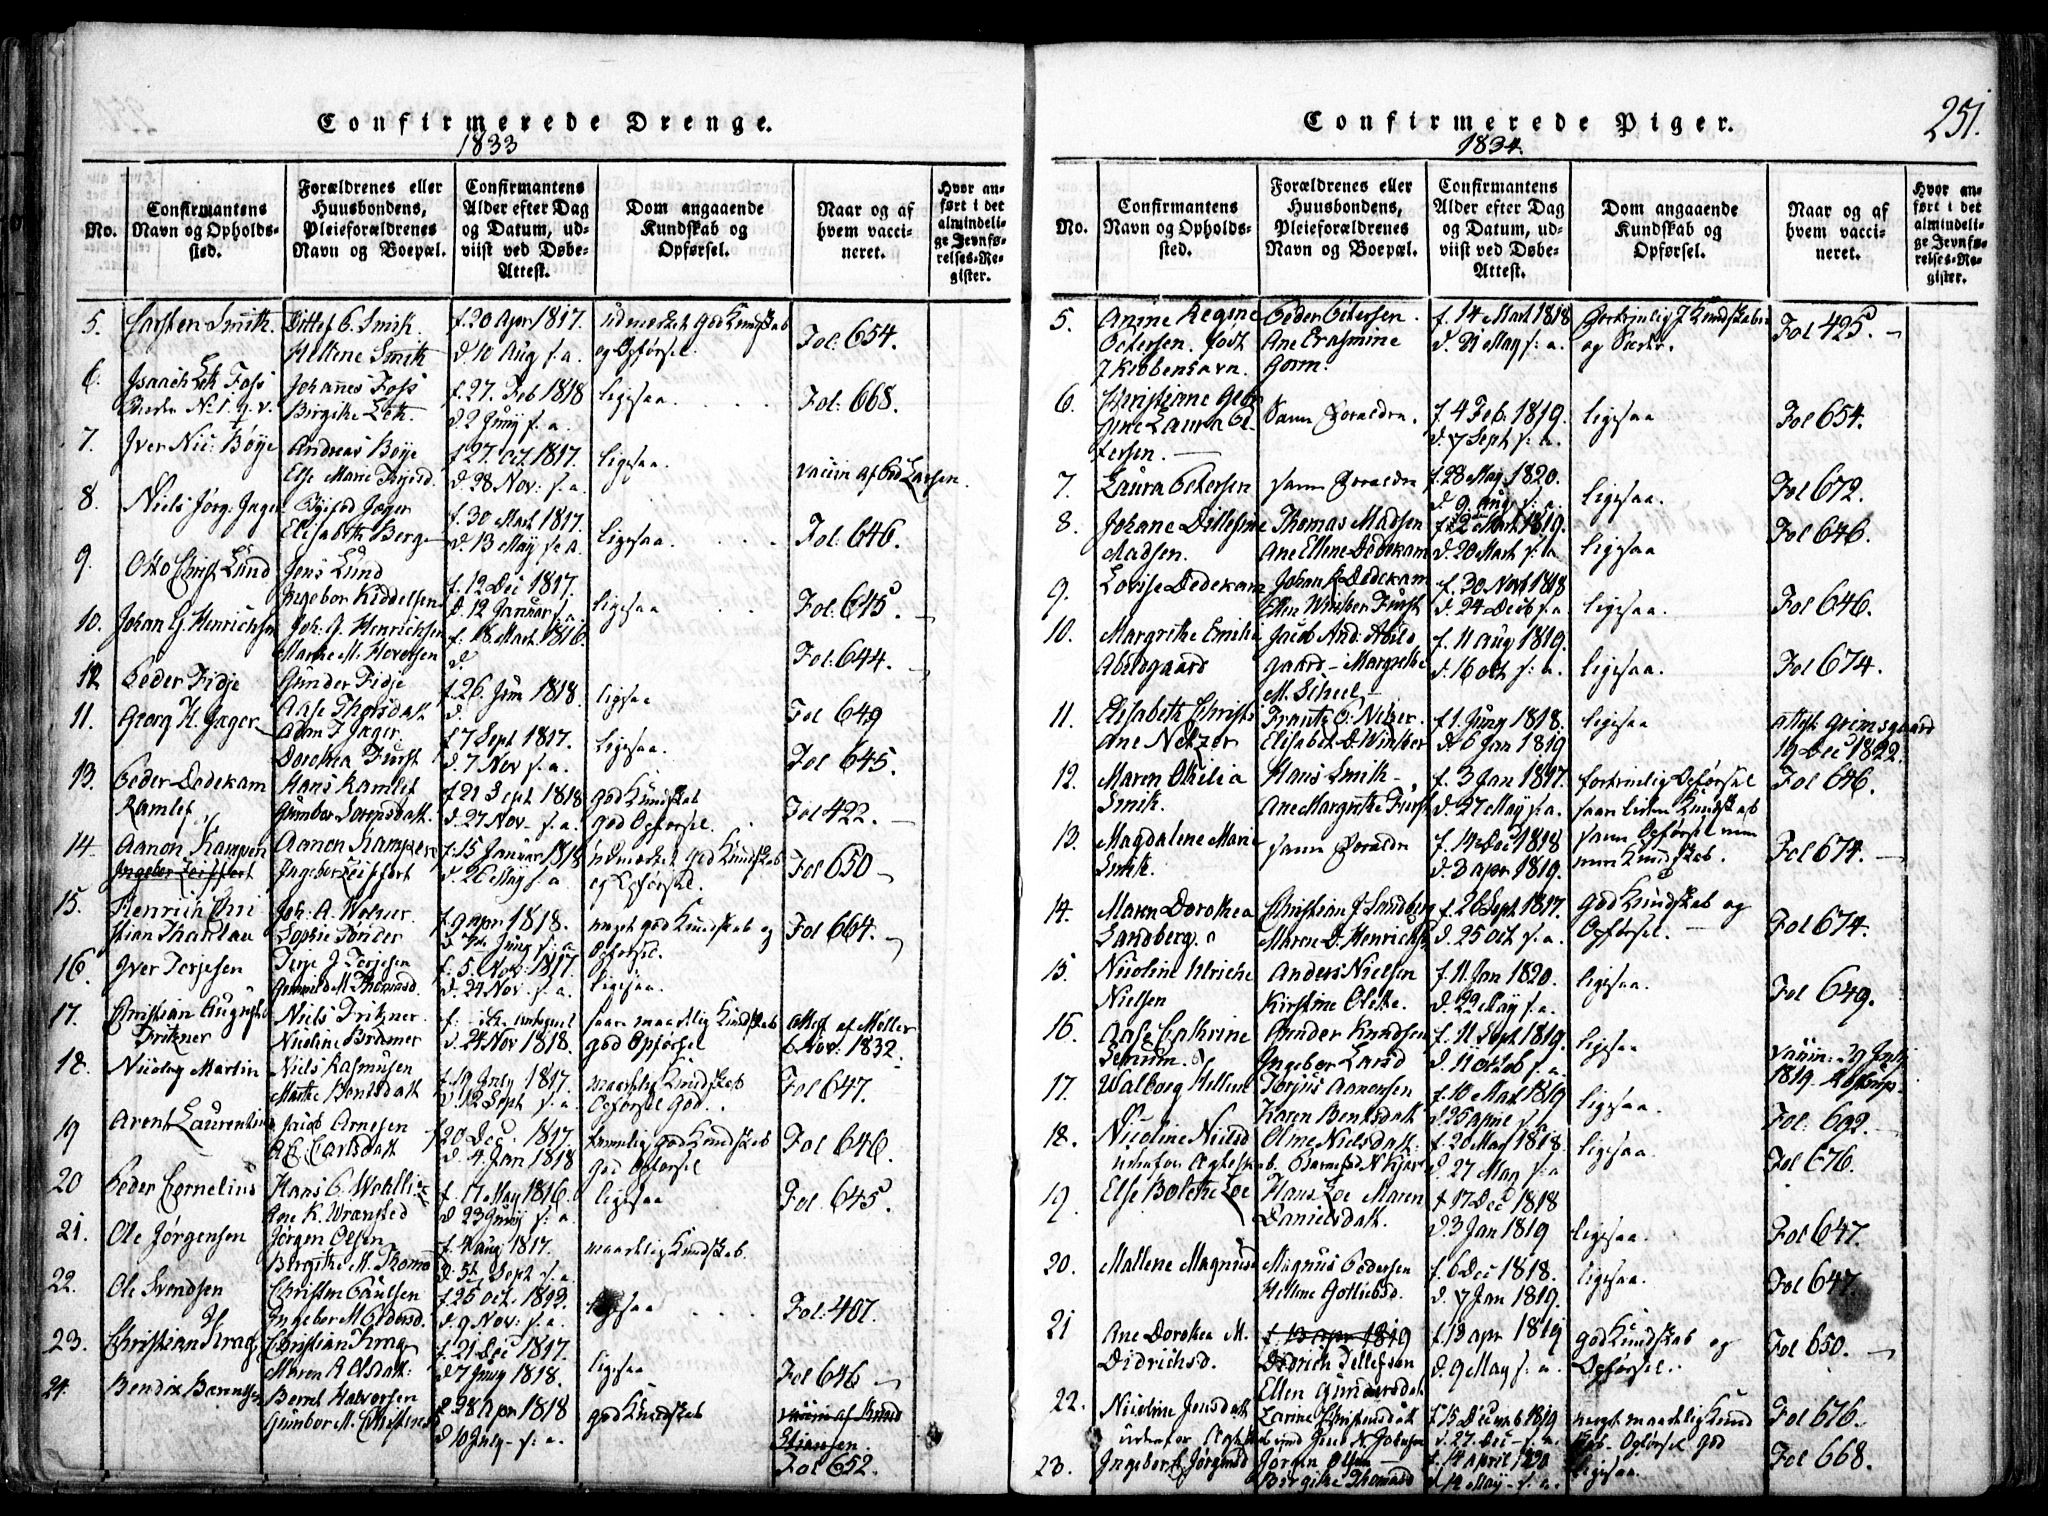 Confirmerede Drenge.
1833
No.
Confirmantens Navn og Opholdssted.
Forældrenes eller Huusbondens, Pleieforældrenes Navn og Boepæl.
Confirmantens Alder efter Dag og Datum, udviist ved Døbe-Attest.
Dom angaaende Kundskab og Opførsel.
Naar og af hvem vaccineret.
Hvor anført i det almindelige Jevnførelses-Register.
5. Carsten Smith. Ditlef C. Smith. f. 20 Apr 1817. udmerket god Kundskab
Hellene Smith d. 10 Aug s. a. og Opførsel. Fol: 654.
6. Isaach Lek Foss Johannes Foss f. 27. Feb 1818 ligesaa
Birgithe Lek. d. 2 Juny s. a. Fol: 668.
7. Iver Nic: Bøye Andreas Bøye f. 27 oct 1817. ligesaa.
Else Marie d. 28 Nov: s. a. vaccin af Larsen.
8. Niels Jørg: Jager Jæger f. 30 Mart 1817. ligesaa.
Elisabeth Berg d. 13 May s. a. Fol: 646.
9. Otto Christ Lund Jens Lund f. 12 Dec 1817. ligesaa
Ingebor Kiddelsen d. 12 Januar Fol: 645.
10. Johan G. Henrichsen Joh: G. Henrichsen f. 18 Mart 1816.
Marthe M. Hoversen d Fol: 644.
12 Peder Fidje Gunder Fidje f. 26. Jun 1818 ligesaa
Aase Thorsdatt d. Fol 649
11. Georg H. Jager Adam F Jager. f 7 Sept 1817. ligesaa.
Dorothea Furst d. 7 Nov s. a. Fol 645.
13. Peder Dedekam Hans Ramlef f 21 Sept 1818 god Kundskab
Ramlef Gunbor Sorensdatt. d. 27 Nov. s. a. god Opførsel. Fol 422.
14. Aanon Kampen Aanon Kampen f. 15 Januar 1818 udmerket god Kundskab
Ingebor Leiffert d. 26 May s. a. og Opførsel. Fol 650
15. Henrich Chri Joh. A. f. 9 apr 1818. meget god Kundskab og
stian Tharlau Sophie Tonder Juny s: a Opførsel. Fol 664.
16 Iver Terjesen Terje J. Terjesen f. 5. Nov: 1817. ligesaa.
Thomasd. d. 24 Nov. s. a.
17. Christian August Niels Fritzner. saare maadelig Kundskab attest af Møller
Fritzner Nicoline Bremer d. 24 Nov 1818. god Opførsel 6 Nov: 1832.
18. Nicolay Martin Niels Rasmusen f 19 July 1817. maadelig Kundskab
Marthe Bentsdatt d. 12 Sept s. a. Opførsel God. Fol 647.
19 Arent Laurentius Jacob Arnesen f 20 Dec. 1817. temmelig god Kundskab
Carlsdatt d. 4 Jan 1818 god Opførsel Fol 646.
20 Peder Cornelius Hans f. 17 May 1816. ligesaa
Ane K. Wransted d 23 Juny s: a. Fol. 645.
21. Ole Jørgensen Jørgen Olsen f. 4 aug 1817. maadelig Kundskab.
Birgithe M. Thoms d. Sept s. a.
22. Ole Svendsen Christen Paulsen f 25 oct. ligesaa
Ingebor M. Pedersd. d. 9 Nov: s. a. Fol: 407.
23. Christian Krag Christian Krag f. 21 Dec 1817. ligesaa
Maren A. Olsdatt: d. 7 Juny 1818. Fol 646
24. Bendix Barentsen Bernt Halvorsen f. 28 apr 1818 god Kundskab
Gunbor M. d 10 July s. a. vaccin af Knud
Stiansen.
Fol 652.
251.
Confirmerede Piger.
1834.
No.
Confirmantens Navn og Opholdssted.
Forældrenes eller Huusbondens, Pleieforældrenes Navn og Boepæl.
Confirmantens Alder efter Dag og Datum, udviist ved Døbe-Attest.
Dom angaaende Kundskab og Opførsel.
Naar og af hvem vaccineret.
Hvor anført i det almindelige Jevnførelses-Register.
5. Anine Regine Peder Petersen. f. 14 Mart 1818 fortrinlig i Kundskaber
Petersen. født Ane Erasmine d. 21 May s. a. og Sæder. Fol 425.
i Kiøbenhavn. Gorm.
6. Christiane Ge Samme Foraeldre. f. 4 Feb. 1819. ligesaa
sine Laura Pe d. 7 Sept s. a. Fol 654.
tersen.
7. Laura Petersen samme Foraeldre f. 28 May 1820. ligesaa.
d. 9 aug s. a. Fol 672.
8. Johane Ditlefine Thomas Madsen f. 2 Mart 1819. ligesaa
Madsen. Ane Ellene Dedekam d. 20 Mart s. a. Fol 646.
9. Lovise Dedekam Johan Dedekam f. 30 Novb 1818 ligesaa.
Ellen Winther Furst d. 24 Decb s. a. Fol 646.
10. Margrethe Emilie Jacob And: Abild f. 11 aug 1819. ligesaa.
Abildgaard gaard - Margrethe d. 16 oct s. a. Fol 674.
M. Scheel
11. Elisabeth Christi Frantz P. Netzer. f. 1 Juny 1818. ligesaa attest Grimsgaard
Ane Netzer Elisabet D. Winther d. 6 Jan 1819 19 Dec 1822.
12. Maren Othilia Hans Smith f. 3 Jan 1817. fortrinlig Opførsel Fol 646.
Smith. Ane Margrethe Furst d. 27 May s. a. saare liden Kundskab
13. Magdalene Marie samme Foraeldre f. 14 Dec 1818 samme Opførsel men
Smith. d. 3 apr 1819. mere Kundskab. Fol 674.
14. Maren Dorothea Christian J. Sandberg f. 26 Sept 1817. god Kundskab og
Sandberg. Maren D. Henrichsen d. 25 oct s. a. Opførsel. Fol 674.
15 Nicoline Ulriche Anders Nielsen f. 11 Jan 1820. ligesaa.
Nielsen Kirstine Olette. d. 22 May s. a. Fol 649.
16. Aase Cathrine Gunder Knudsen f. 11 Sept 1819. ligesaa
Ingebor Larsd d. 11 octob s. a. vaccin: 29 July
17. Walborg Hellene Torjus Aanonsen f. 10 Mart 1819 ligesaa. 1819.
Karen Bentsdatt d. 25 april s. a. Fol: 692.
18. Nicoline Nielsd Olme Nielsdatt: f. 20 May 1818 ligesaa.
udenfor d. 27 May s. a Fol 676.
19. Else Bolethe Loe Hans Loe Maren f 17 Dec 1818 ligesaa.
Danielsdatt. d. 3 Jan 1819 Fol 647.
20. Mallene Magnusd Magnus Pedersen f. 6 Dec 1818. ligesaa.
Hellene Gottliebsd. d. 7 Jan 1819. Fol 647.
21 Ane Dorothea M. f. 13 apr 1819 f. 13 apr 1819 god Kundskab og
Didrichsd. Didrich Dellefsen d. 9 May s. a. Opførsel. Fol 650.
Ellen Gundersdatt
22. Nicoline Jensdatt Larine Christensdatt f 15 Decemb 1819 meget maadelig Kund Fol 676.
udenfor d. 27. Dec s. a. skab Opførsel God
23. Ingebor Jørgensd Jørgen Olsen f. 14 april 1820 ligesaa. Fol 668.
Birgithe Thomasd d 14 May s. a.